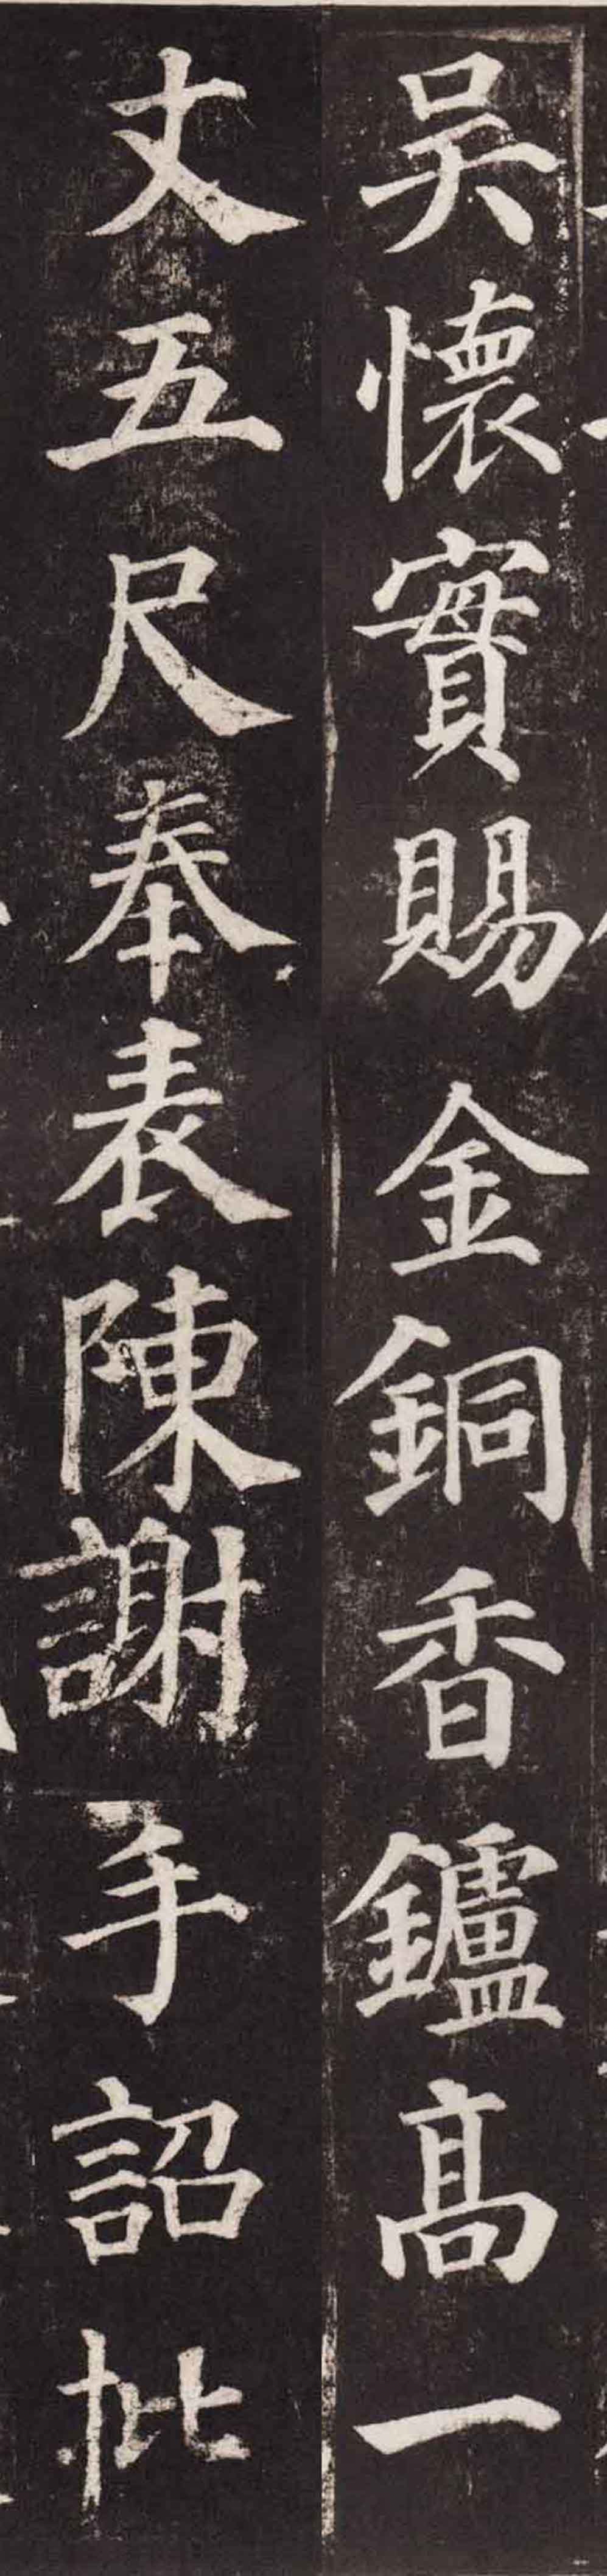 吴懷實賜金銅香鑪髙一
丈五尺奉表陳謝手詔批